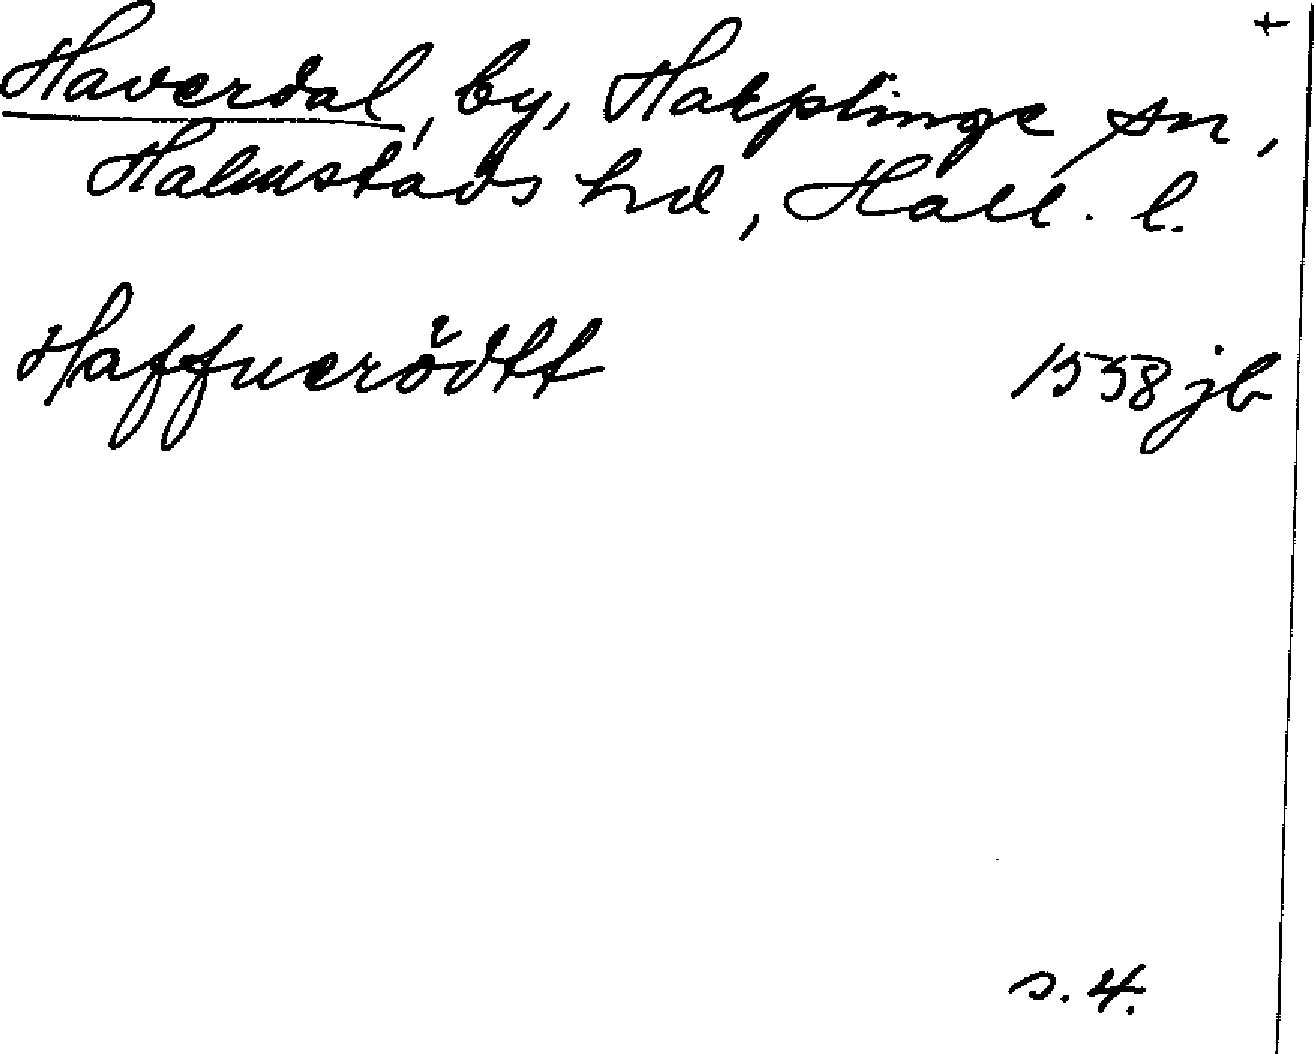 +
Haverdal, by, Harplinge sn,
Halmstads hd, Hall. l.
Haffuerödtt 1558 jb
s. 4.